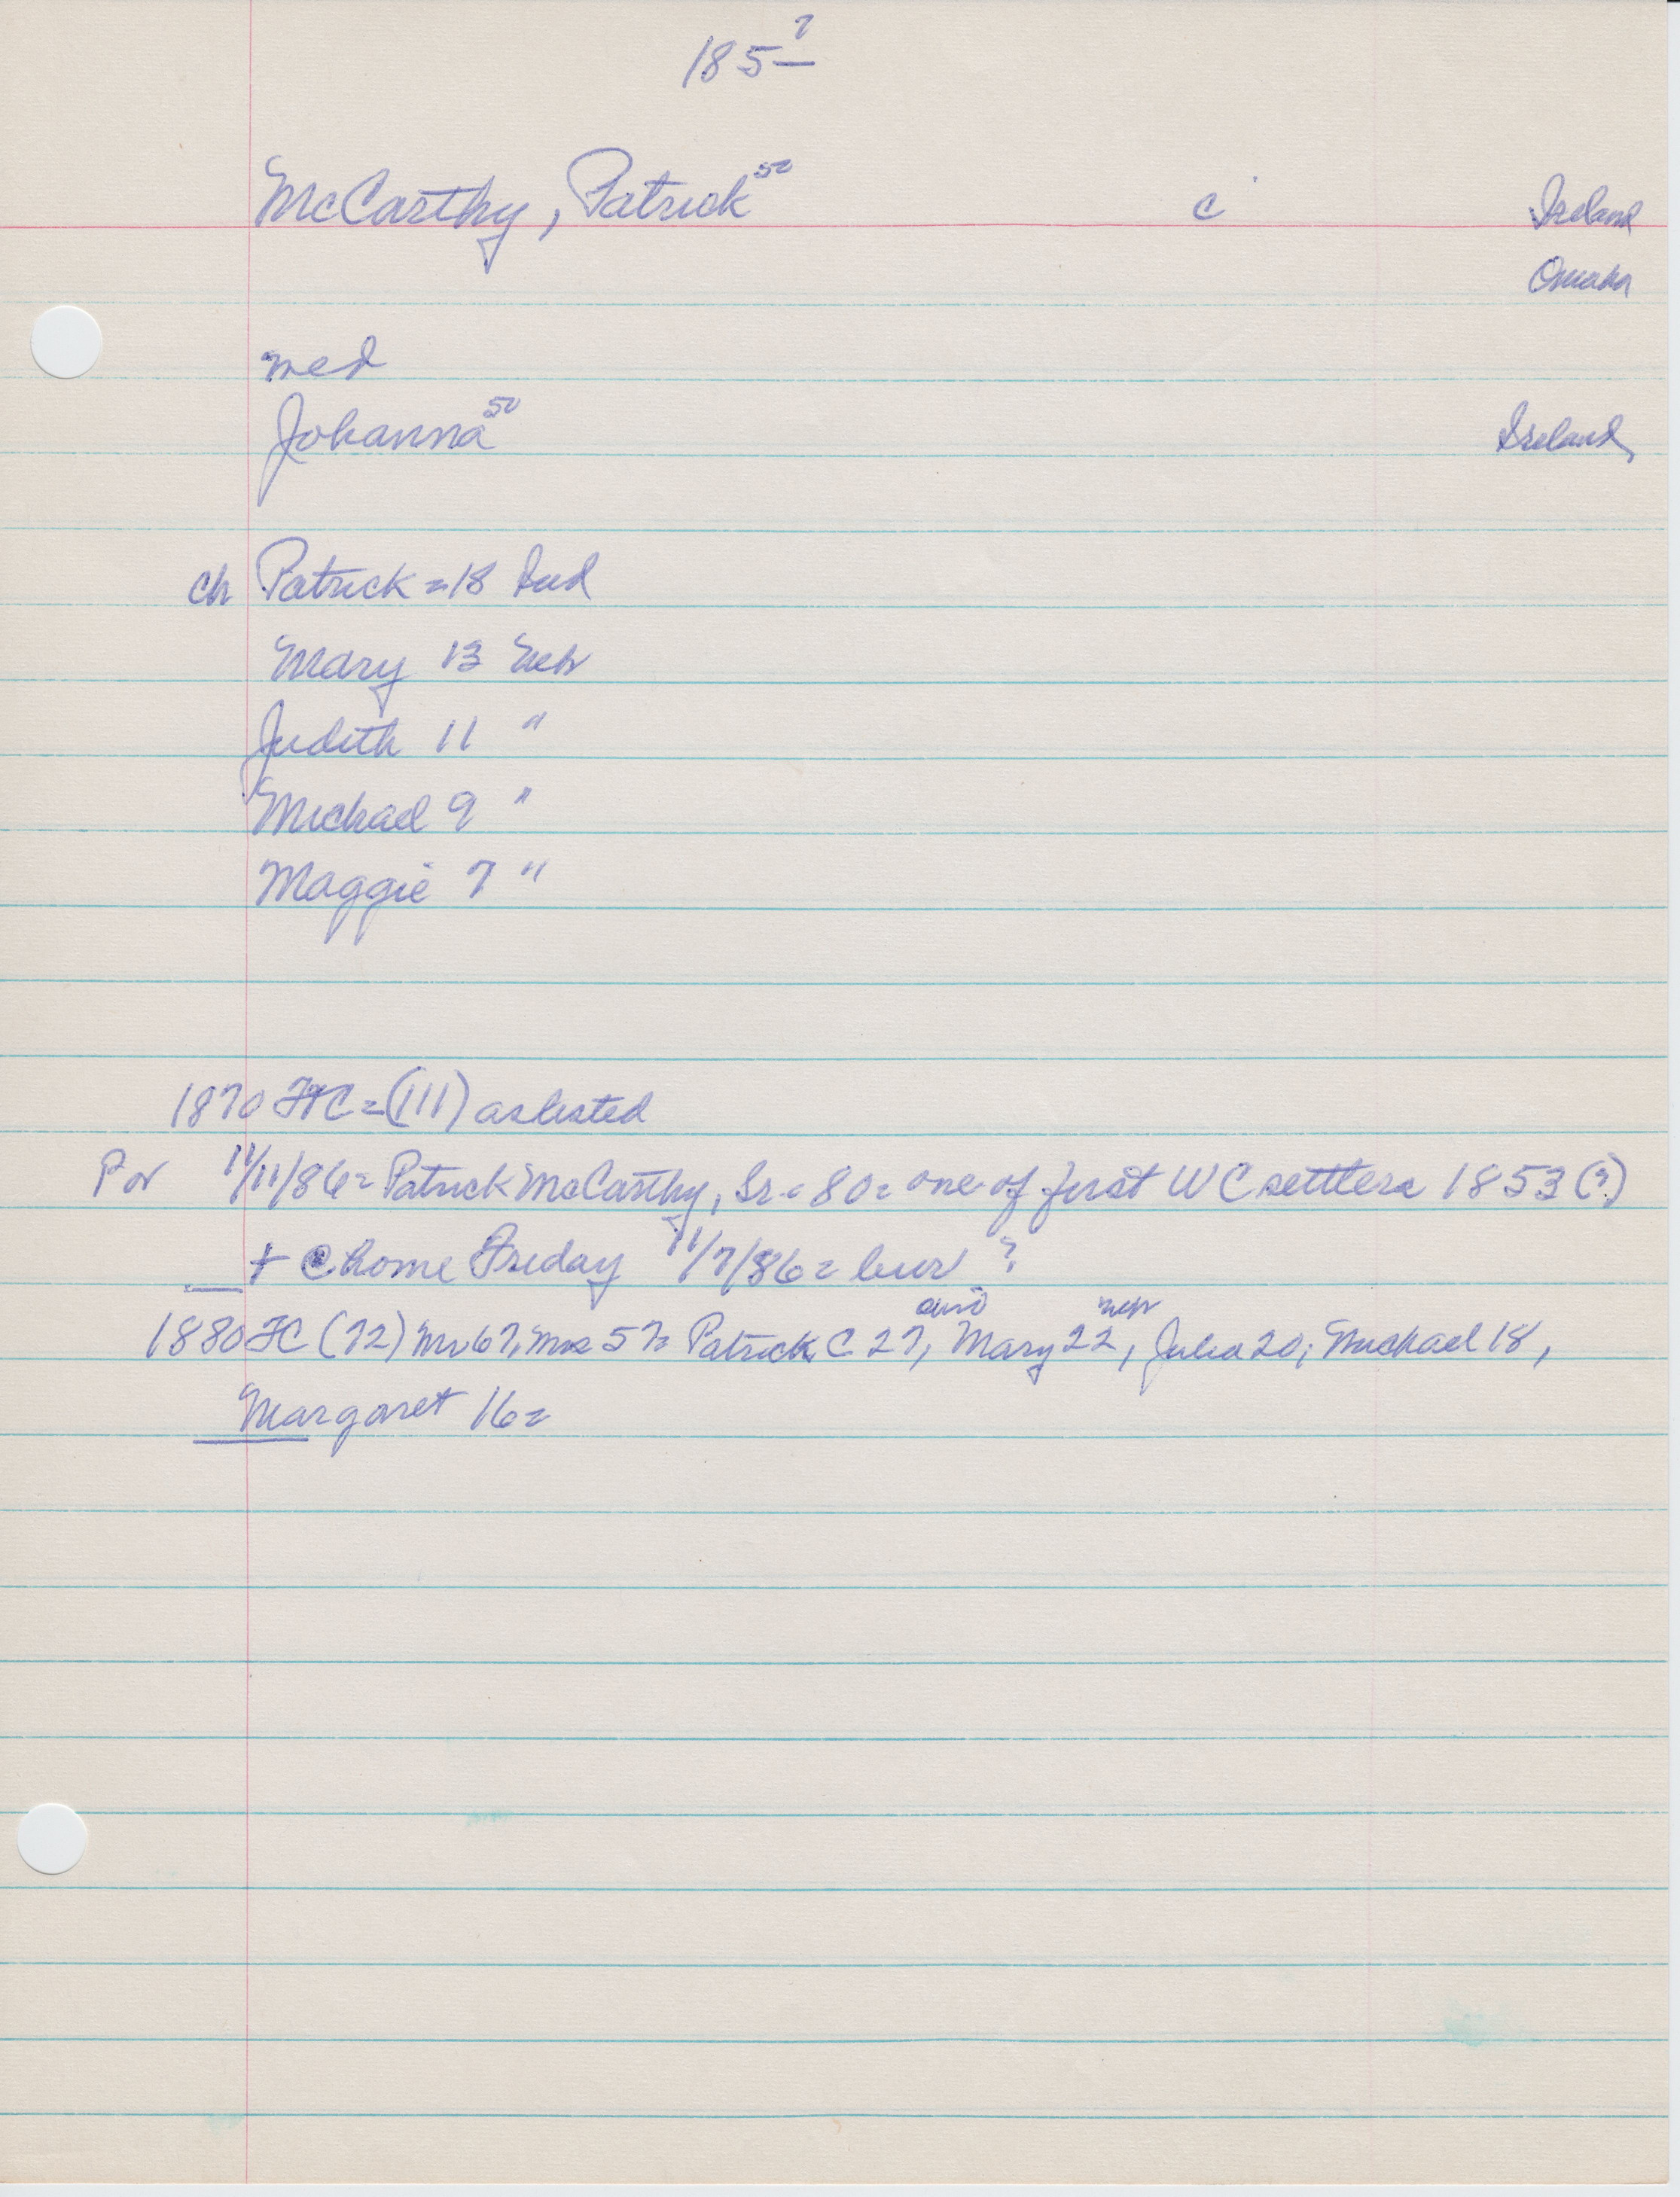 185?
McCarthy, Patrick 50 c Ireland
Omaha
med
Johanna 50 Ireland
ch Patrick = 18 Ind
Mary 13 Neb
Judith 11 "
Michael 9 "
Maggie 7 "
1870 FC = (111) as listed
Por 11/11/86 = Patrick McCarthy, Sr = 80 = one of first WC settlers 1853 (?)
+ @ home Friday 11/7/86 = bur ?
1880 FC (72) Mr 67, Mrs 57 = Patrick C 27, Mary 22, Neb Julia 20; Michael 18,
Margaret 16 =